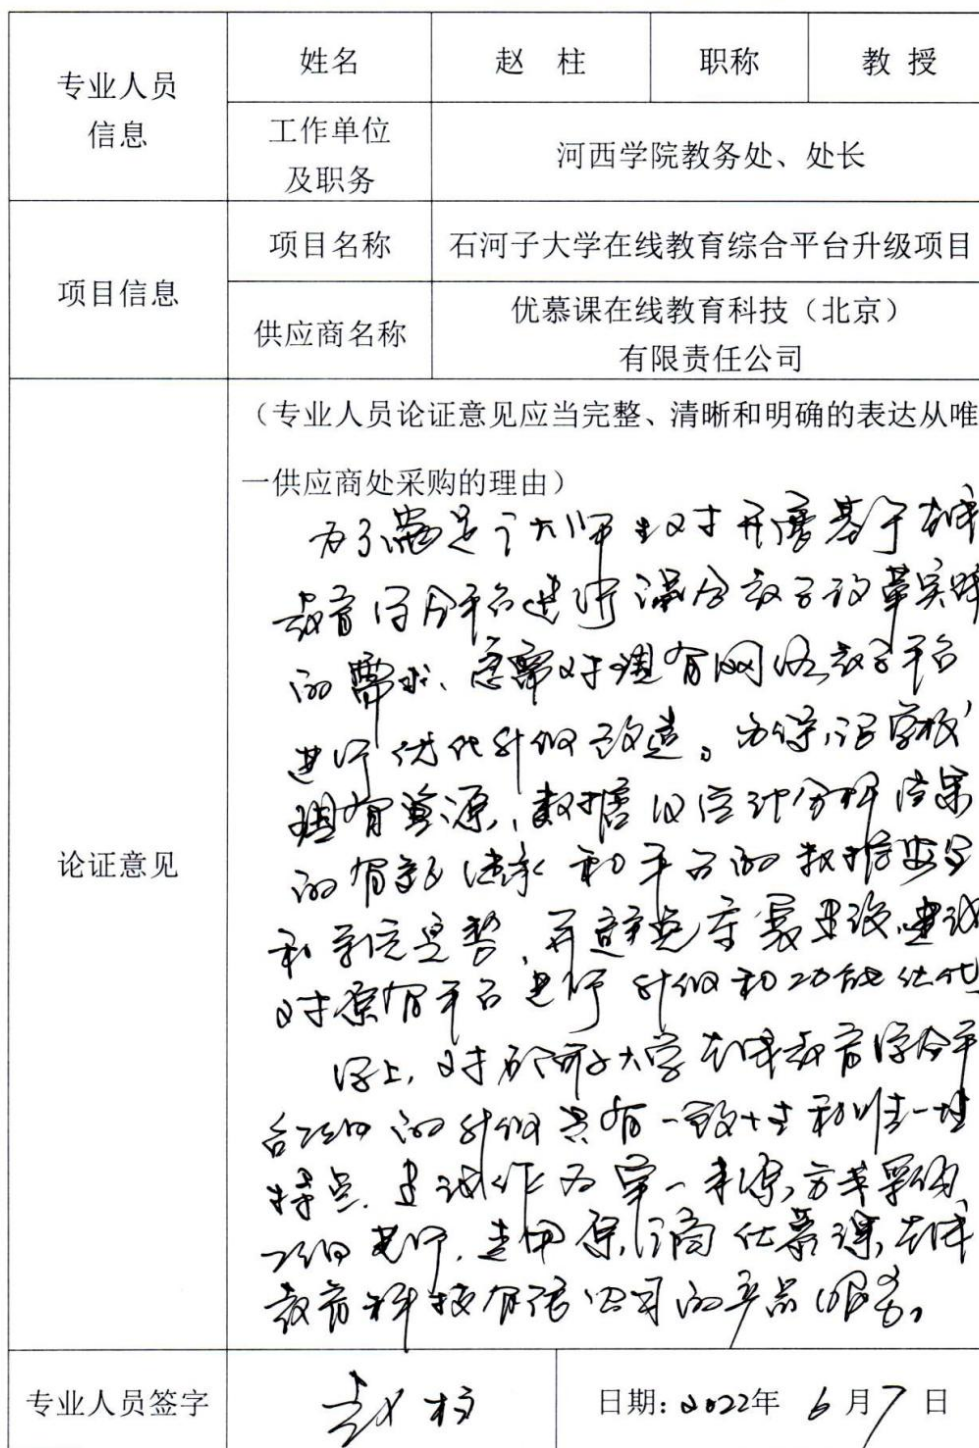 专业人员
信息
姓名
赵 柱
职称
教 授
工作单位
及职务
河西学院教务处、处长
项目信息
项目名称
石河子大学在线教育综合平台升级项目
供应商名称
优慕课在线教育科技（北京）
有限责任公司
论证意见
（专业人员论证意见应当完整、清晰和明确的表达从唯
一供应商处采购的理由）
为了满足广大师生对开展基于在线
教育综合平台进行混合教学改革实践
的需求、急需对现有网络教学平台
进行优化升级改造。为保证学校
现有资源、数据以统计分析结果
的有效继承和平台的数据安全
和 ，并避免重复建设，建议
对原有平台进行升级和功能优化
综上，对石河子大学在线教育综合平
台项目的升级具有一致性和唯一性
特点．建议作为单一来源方式采购
项目 ，选用原厂商优慕课在线
教育科技有限公司的产品服务。
专业人员签字
赵柱
日期：2022年 6月7日